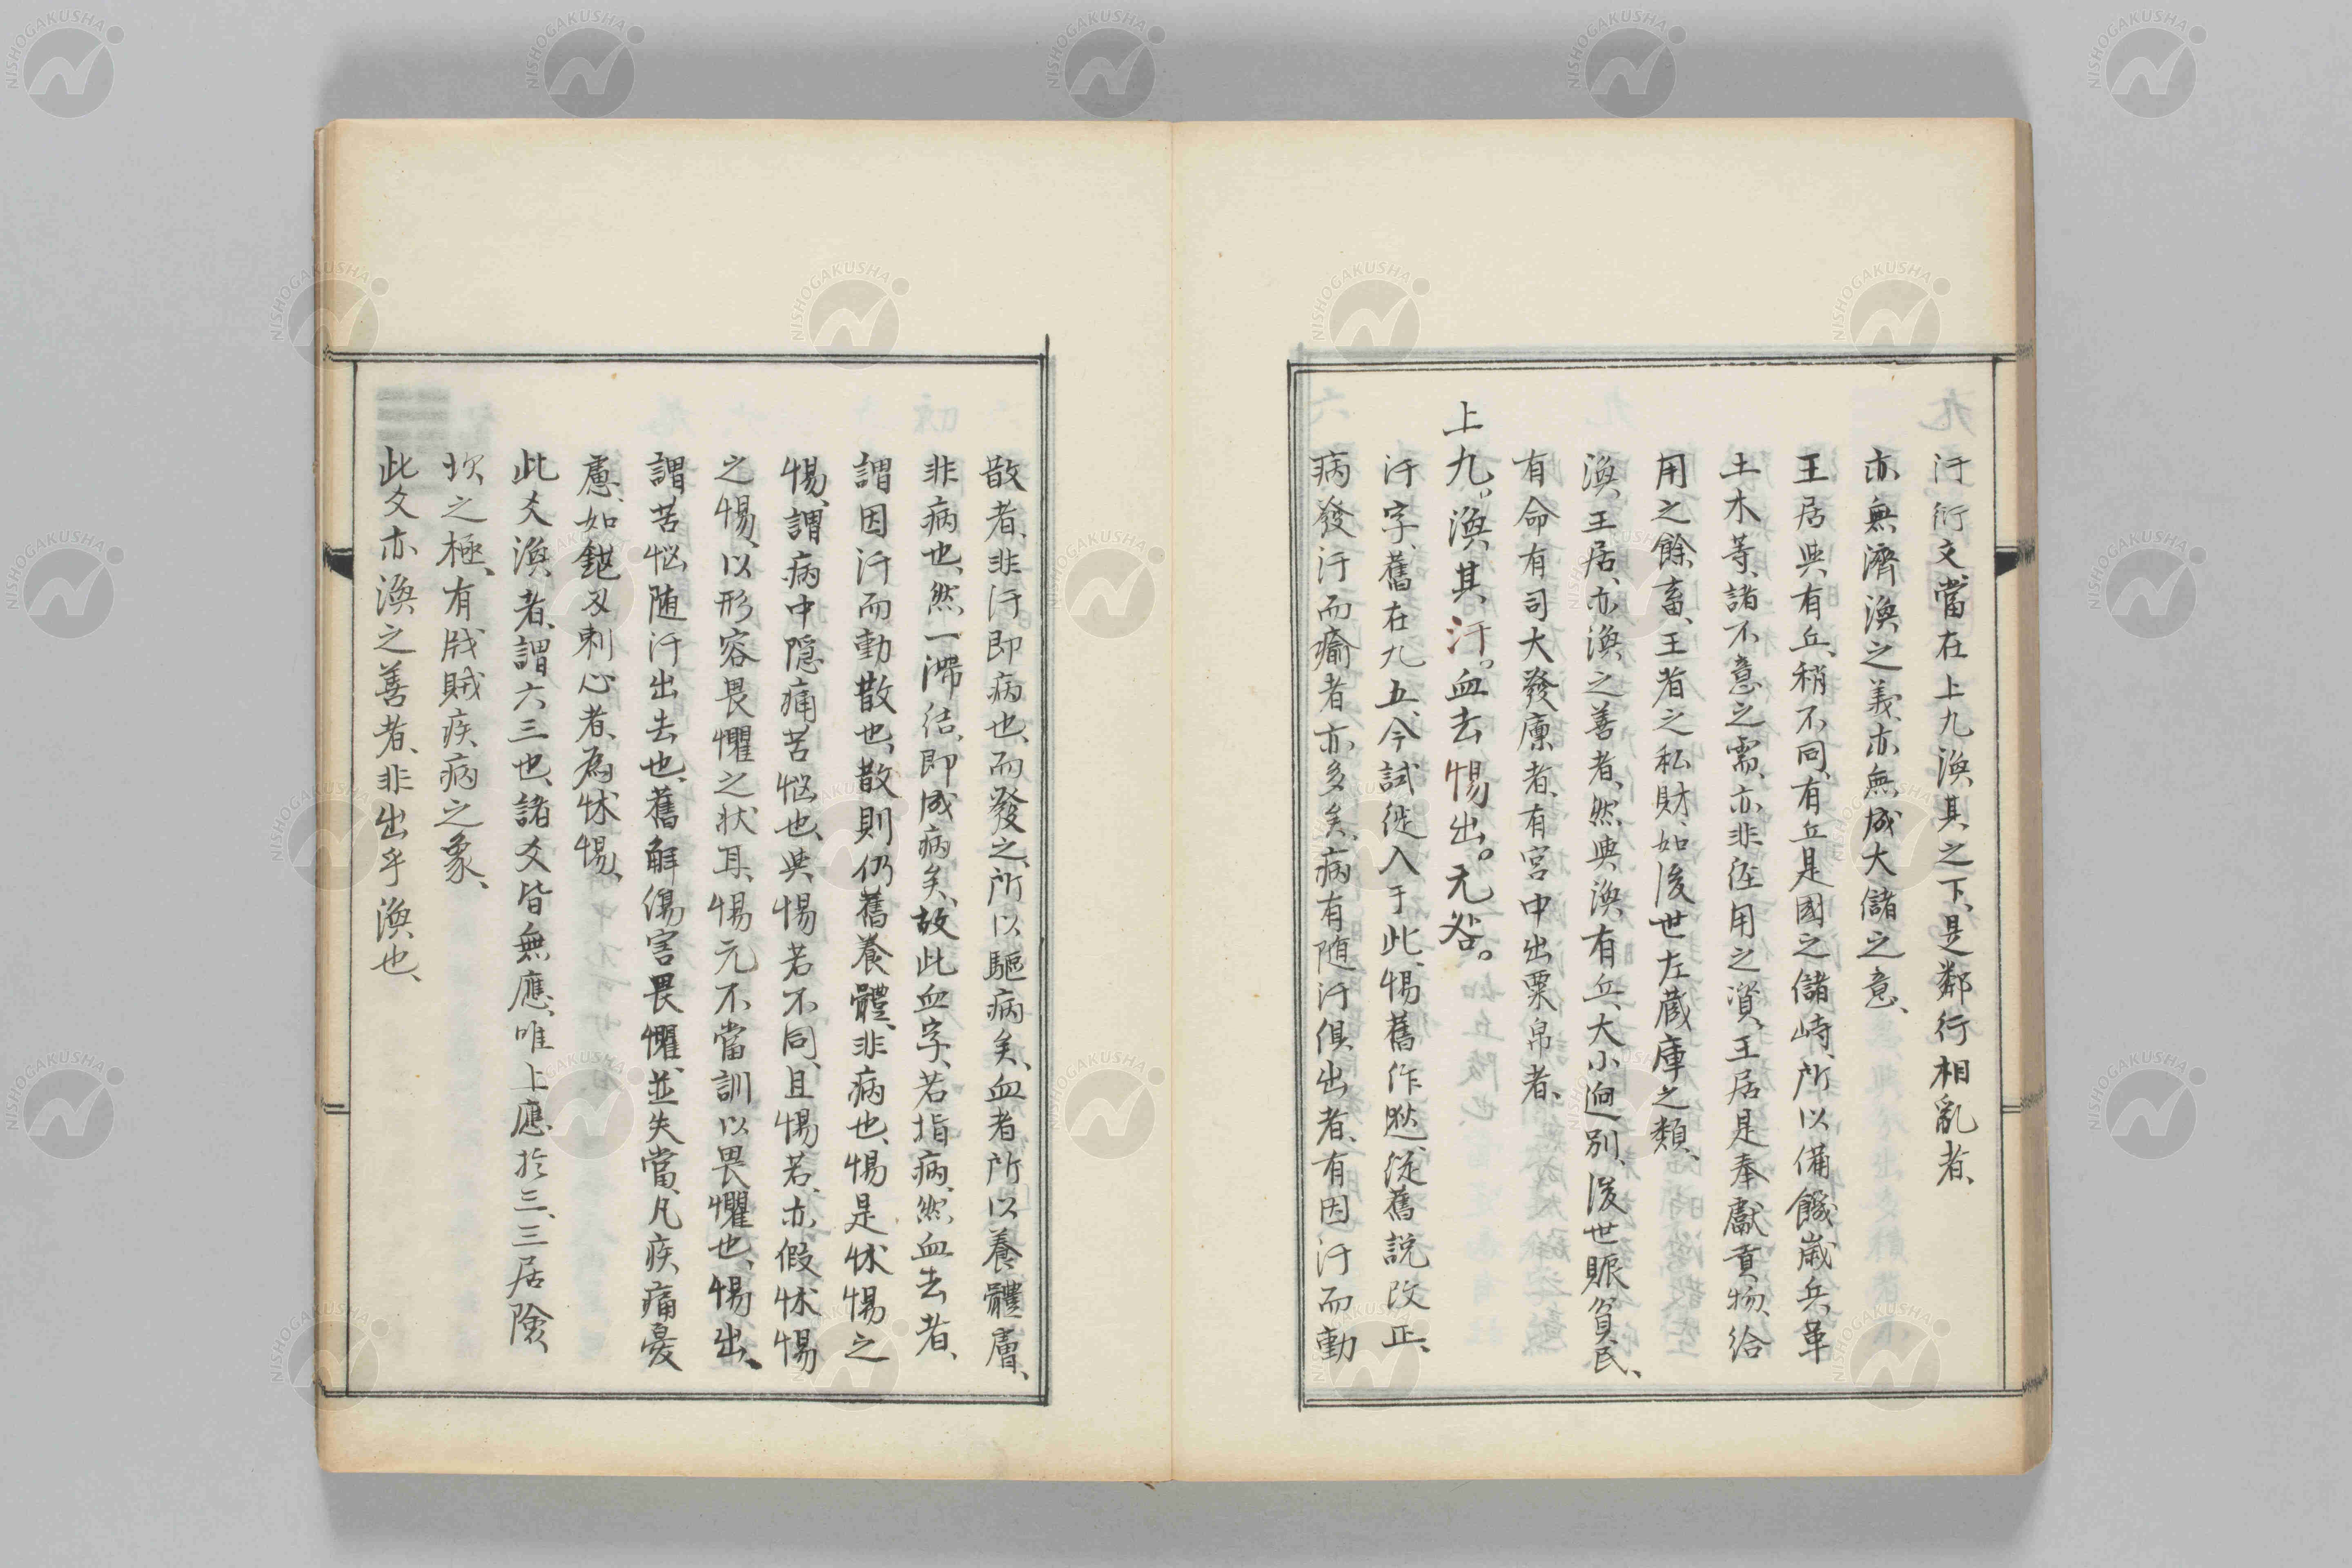 汗衍文、當在上九渙其之下、是鄰行相亂者、
亦無濟渙之義、亦無成大儲之意、
王居與有丘、稍不同、有丘是國之儲峙、所以備饑歲兵革
土木等、諸不意之需、亦非經用之資、王居是奉獻貢物、給
用之餘畜、王者之私財、如後世左藏庫之類、
渙王居、亦渙之善者、然與渙有丘、大小迥別、後世賑貧民、
有命有司大發廩者、有宮中出粟帛者、
上九。渙其汗。血去惕出。无咎。
汗字、舊在九五、今試徙入于此、惕舊作逖、從舊說改正、
病發汗而瘉者亦多矣、病有随汗俱出者、有因汗而動
散者、非汗即病也、而發之、所以驅病矣、血者所以養體膚、
非病也、然一滯結、即成病矣、故此血字、若指病、然血去者、
謂因汗而動散也、散則仍舊養體、非病也、惕是怵惕之
惕、謂病中隱痛苦惱也、與惕若不同、且惕若、亦假怵惕
之惕、以形容畏懼之状耳、惕元不當訓以畏懼也、惕出、
謂苦惱随汗出去也、舊解傷害畏懼、並失當、凡疾痛憂
慮、如鋸刃刺心者、為怵惕、
此爻渙者、謂六三也、諸爻皆無應、唯上應於三、三居險
坎之極、有戕賊疾病之象、
此爻亦渙之善者、非出乎渙也、
NISHOGAKUSHA